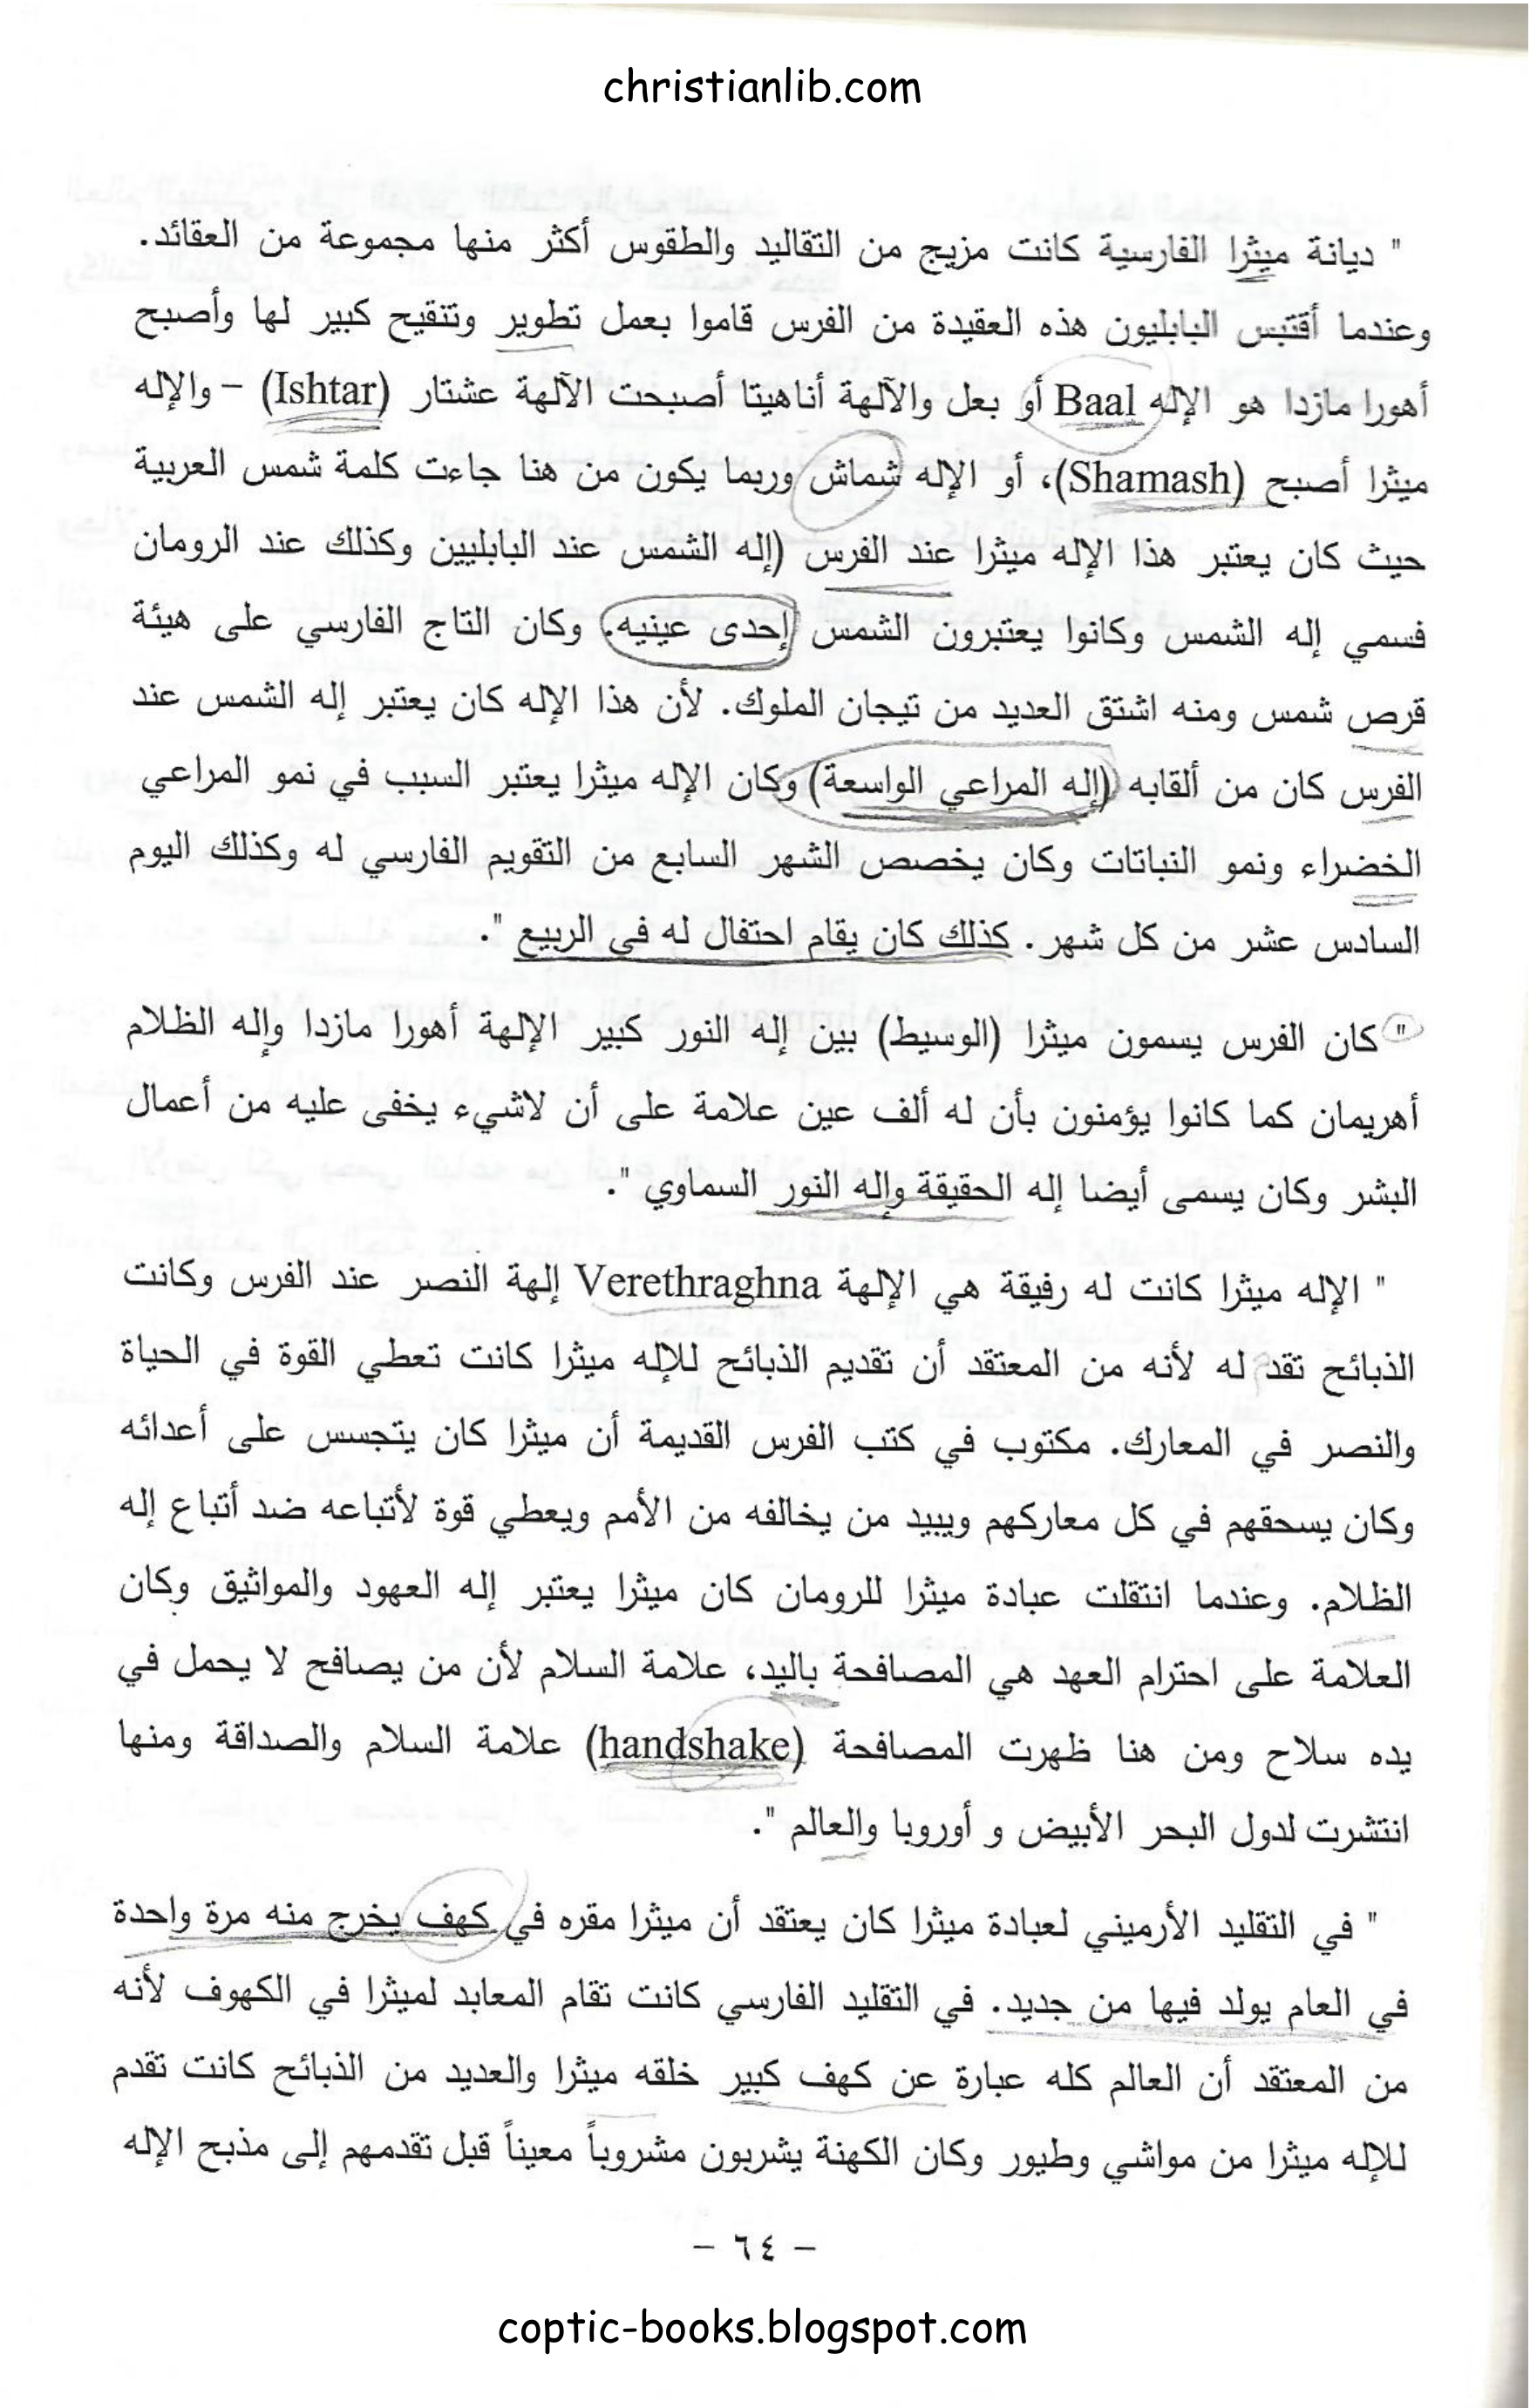 christianlib.com
" ديانة ميثرا الفارسية كانت مزيج من التقاليد والطقوس أكثر منها مجموعة من العقائد.
وعندما أقتبس البابليون هذه العقيدة من الفرس قاموا بعمل تطوير وتنقيح كبير لها وأصبح
أهورا مازدا هو الإله Baal أو بعل والآلهة أناهيتا أصبحت الآلهة عشتار (Ishtar) – والإله
ميثرا أصبح (Shamash)، أو الإله شماش وربما يكون من هنا جاءت كلمة شمس العربية
حيث كان يعتبر هذا الإله ميثرا عند الفرس (إله الشمس عند البابليين وكذلك عند الرومان
فسمي إله الشمس وكانوا يعتبرون الشمس إحدى عينيه. وكان التاج الفارسي على هيئة
قرص شمس ومنه اشتق العديد من تيجان الملوك. لأن هذا الإله كان يعتبر إله الشمس عند
الفرس كان من ألقابه (إله المراعي الواسعة) وكان الإله ميثرا يعتبر السبب في نمو المراعي
الخضراء ونمو النباتات وكان يخصص الشهر السابع من التقويم الفارسي له وكذلك اليوم
السادس عشر من كل شهر. كذلك كان يقام احتفال له في الربيع ".
" كان الفرس يسمون ميثرا (الوسيط) بين إله النور كبير الإلهة أهورا مازدا وإله الظلام
أهريمان كما كانوا يؤمنون بأن له ألف عين علامة على أن لاشيء يخفى عليه من أعمال
البشر وكان يسمى أيضا إله الحقيقة وإله النور السماوي ".
" الإله ميثرا كانت له رفيقة هي الإلهة Verethraghna إلهة النصر عند الفرس وكانت
الذبائح تقد له لأنه من المعتقد أن تقديم الذبائح للإله ميثرا كانت تعطي القوة في الحياة
والنصر في المعارك. مكتوب في كتب الفرس القديمة أن ميثرا كان يتجسس على أعدائه
وكان يسحقهم في كل معاركهم ويبيد من يخالفه من الأمم ويعطي قوة لأتباعه ضد أتباع إله
الظلام. وعندما انتقلت عبادة ميثرا للرومان كان ميثرا يعتبر إله العهود والمواثيق وكان
العلامة على احترام العهد هي المصافحة باليد، علامة السلام لأن من يصافح لا يحمل في
يده سلاح ومن هنا ظهرت المصافحة (handshake) علامة السلام والصداقة ومنها
انتشرت لدول البحر الأبيض و أوروبا والعالم ".
" في التقليد الأرميني لعبادة ميثرا كان يعتقد أن ميثرا مقره في كهف يخرج منه مرة واحدة
في العام يولد فيها من جديد. في التقليد الفارسي كانت تقام المعابد لميثرا في الكهوف لأنه
من المعتقد أن العالم كله عبارة عن كهف كبير خلقه ميثرا والعديد من الذبائح كانت تقدم
للإله ميثرا من مواشي وطيور وكان الكهنة يشربون مشروباً معيناً قبل تقدمهم إلى مذبح الإله
– ٦٤ –
coptic-books.blogspot.com